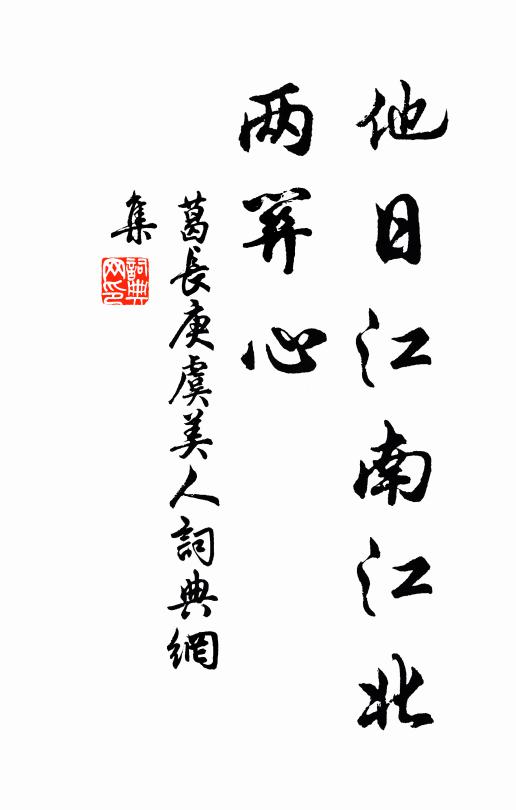 他日江南江北
两關心
葛長庚虞美人詞典網
集
詞典
网印